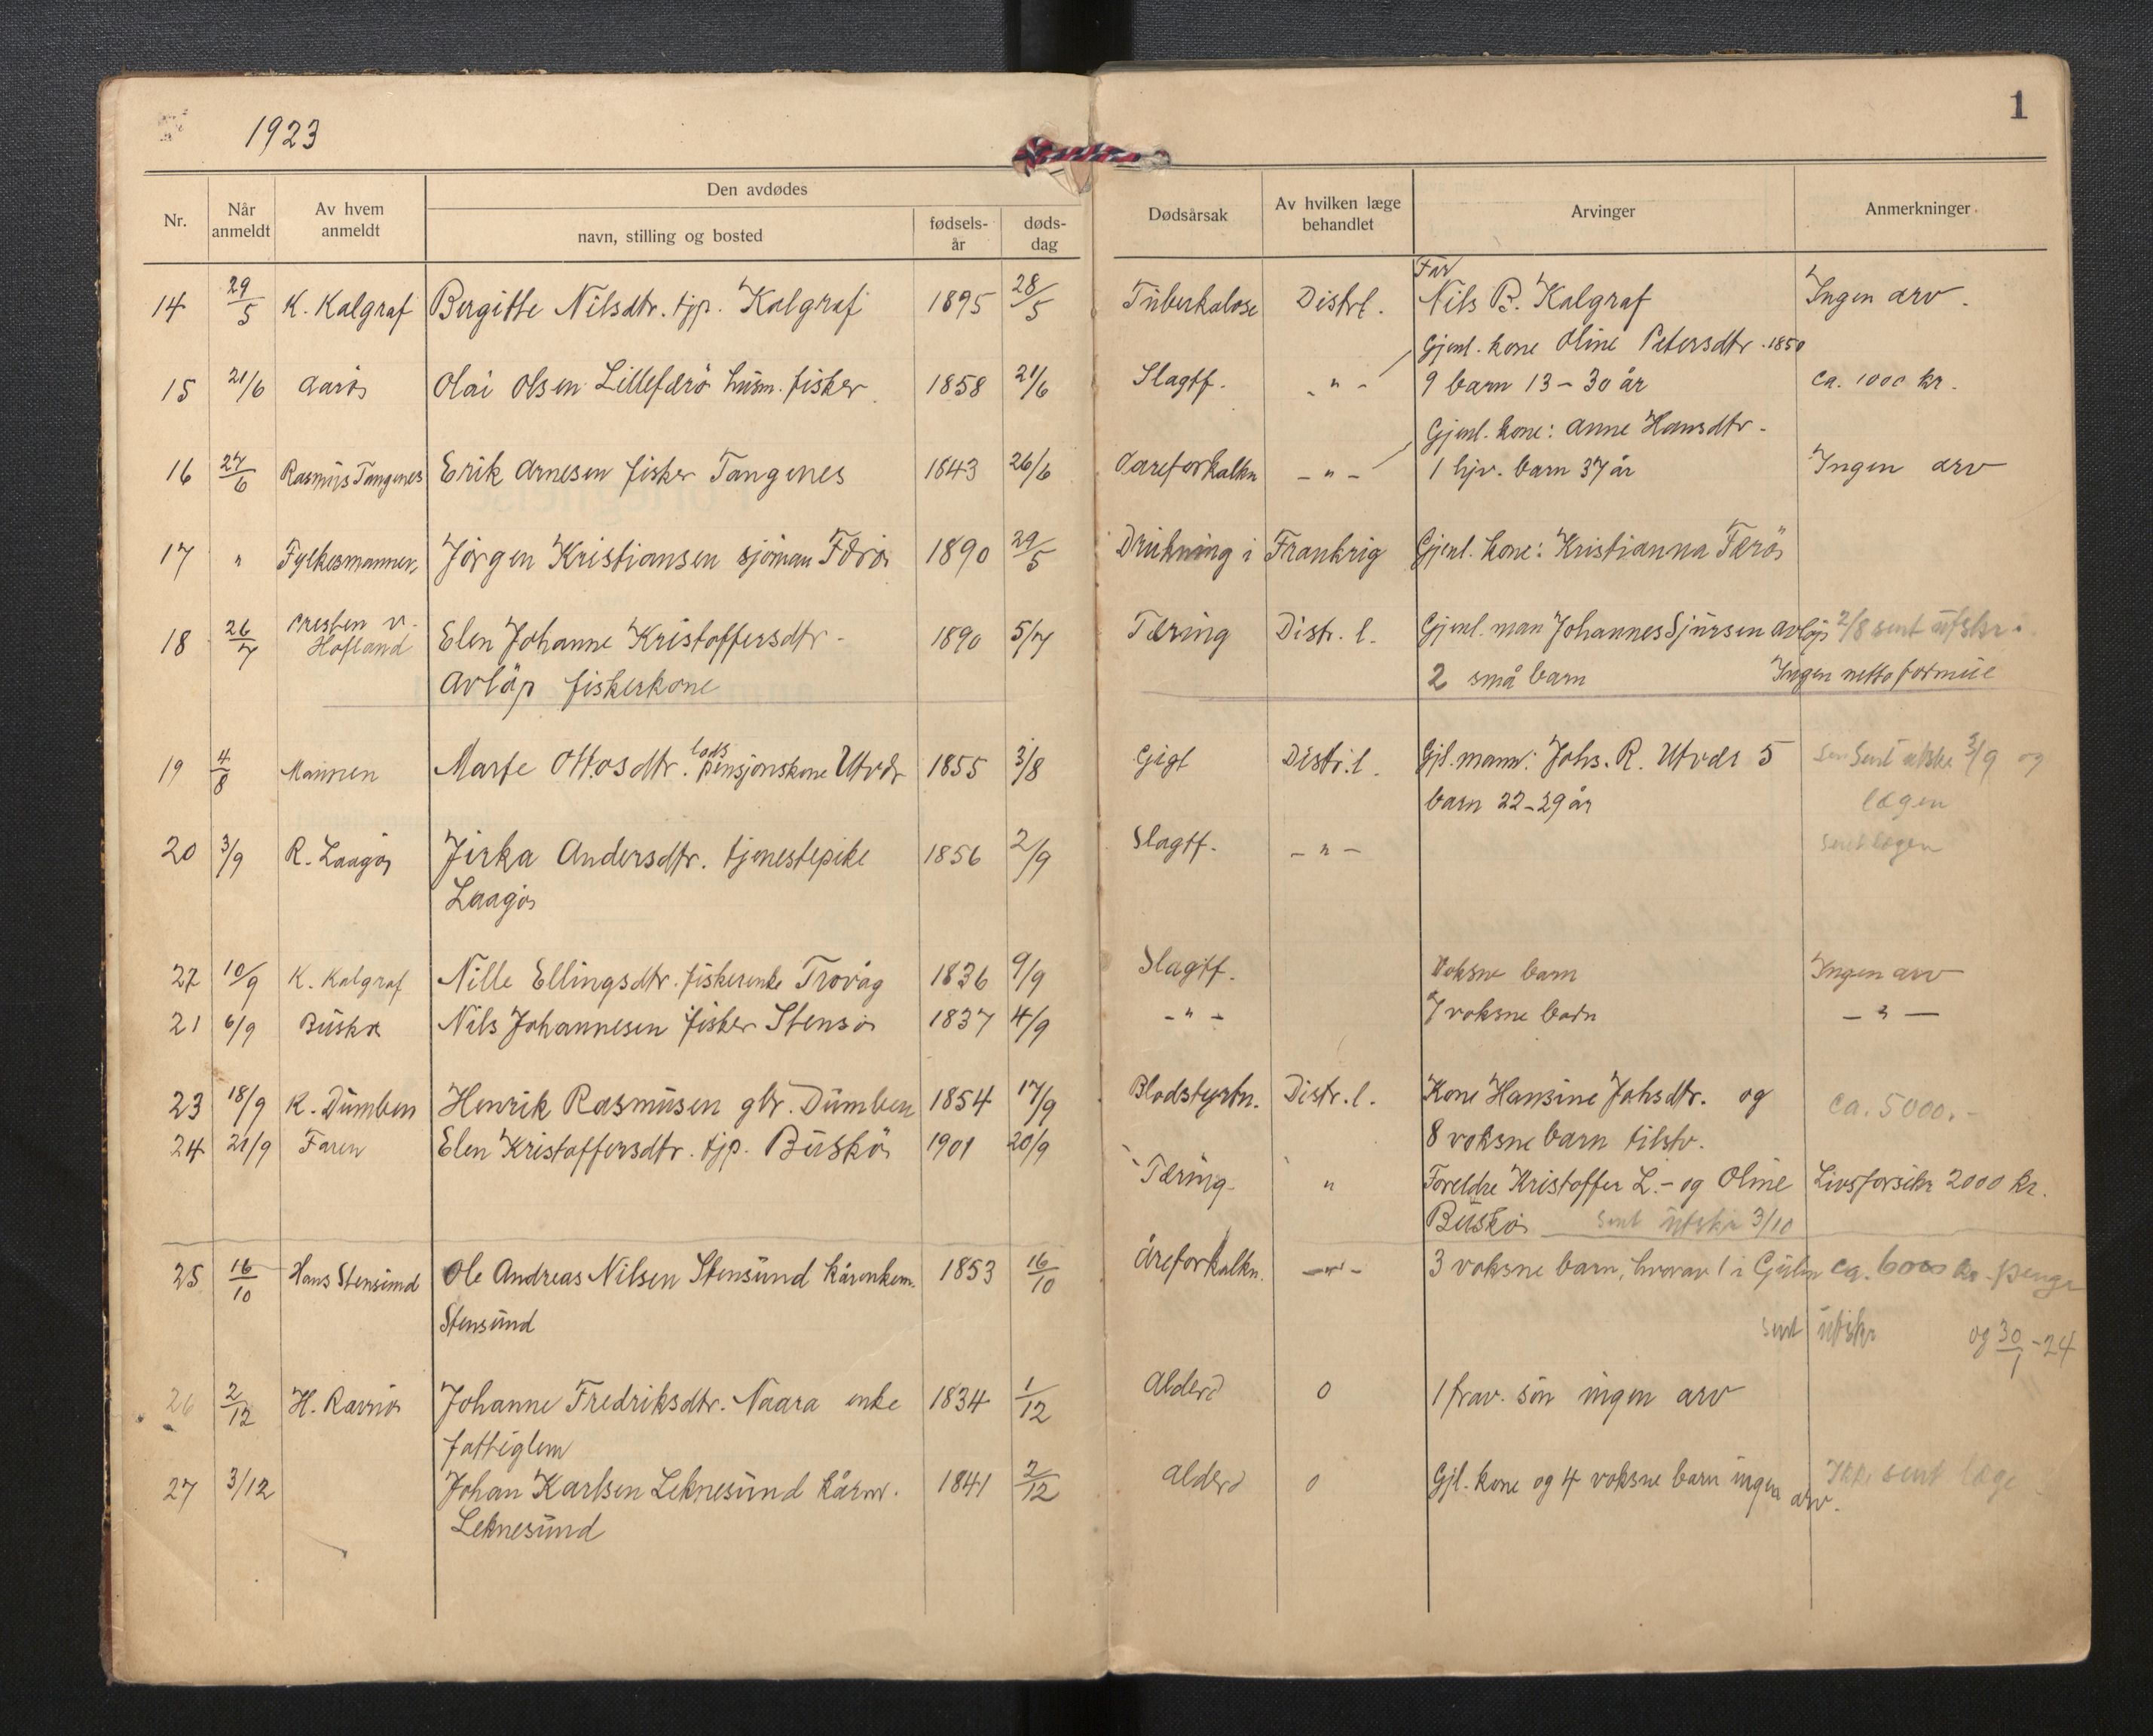 1
1923
Nr.
Når anmeldt
Av hvem anmeldt
Den avdødes
navn, stilling og bosted
fødsels-år
døds-dag
Dødsårsak
Av hvilken læge behandlet
Arvinger
Anmerkninger.
14 29/5 K. Kalgraf Bergitte Nilsdtr. tjp. Kalgraf 1895 28/5 Tuberkulose Distrl. Far Nils B. Kalgraf Ingen arv.
Gjenl. kone Oline Petersdtr. 1850
15 21/6 Olai Olsen Lillefærö husm. fisker 1858 21/6 Slagtf. - " - 9 barn 13 - 30 år ca. 1000 kr.
Gjenl. kone: Anne Hansdtr.
16 27/6 Rasmus Tangenes Erik Arnesen fisker Tangenes 1843 26/6 Aareforkalkn - " - 1 hjv. barn 37 år Ingen arv
17 " Fylkesmannen Jörgen Kristiansen sjöman Færö 1890 29/5 Drukning i Frankrig Gjenl. kone: Kristianna Færö
18 26/7 Presten v. Hofland Elen Johanne Kristoffersdtr. 1890 5/7 Tæring Distr. l. Gjenl. man Johannes Sjursen Avlöp 2/8 sent utskr.
Avlöp fiskerkone 2 små barn Ingen netto formue
19 4/8 Mannen Marte Ottosdtr. lods pensjonskone Utvær 1855 3/8 Gigt Distr. l. Gjl. mann: Johs. R. Utvær 5 sent utskr 3/9 og
barn 22-29 år lægen
20 3/9 R. Laagö Jirka Andersdtr. tjenestepike 1856 2/9 Slagtf. - " - sent lægen
Laagö
22 10/9 K. Kalgraf Nille Ellingsdtr. fiskerenke Trovåg 1836 9/9 Slagtf. Voksne barn Ingen arv
21 6/9 Buskö Nils Johannesen fisker Stensö 1837 4/9 - " - 7 voksne barn - " -
23 18/9 K. Dumben Henrik Rasmusen gbr. Dumben 1854 17/9 Blodstyrtn. Distr. l. Kone Hansine Johsdtr. og ca. 5000.-
8 voksne barn tilstv.
24 21/9 Faren Elen Kristoffersdtr. tjp. Buskö 1901 20/9 Tæring " Foreldre Kristoffer L. - og Oline Livsforsikr 2000 kr.
Buskö sent utskr 3/10
25 16/10 Hans Stensund Ole Andreas Nilsen Stensund kårenkem. 1853 16/10 Åreforkalkn. - " - 3 voksne barn, hvorav 1 i Gulen ca. 6000 kr. penge
Stensund sent utskr og 30/1 -24
26 2/12 H. Ravnö Johanne Fredriksdtr. Naara enke 1834 1/12 Alderd 0 1 frav. sön ingen arv
fattiglem
27 3/12 Johan Karlsen Leknesund kårm. 1841 2/12 Alderd 0 Gjl. kone og 4 voksne barn ingen arv. sent læge
Leknesund